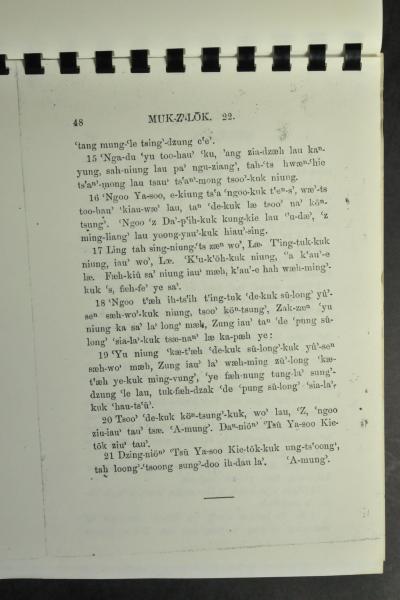 48 MUK-Z'-LÕK. 22.
‘tang mung-‘le tsing’-dzung ‘e‘e’.
15 ‘Nga-du ‘yu too-hau’ ‘ku, ‘ang zia-dzæh lau kaⁿ-
yung, sah-niung lau pa’ ngu-ziang’, tah-‘ts hwæn-‘hie
ts’aⁿ’-mong lau tsau’ ts’aⁿ’-mong tsoo’-kuk niung.
16 ‘Ngoo Ya-soo, e-kiung ts’a ‘ngoo-kuk t’eⁿ-s’, wæ’-ts
too-hau’ ‘kiau-wæ’ lau, taⁿ ‘de-kuk læ tsoo’ na’ köⁿ-
tsung’. ‘Ngoo ‘z Da’-p’ih-kuk kung-kie lau ‘’u-dæ’, ‘z
ming-liang’ lau yoong-yau’-kuk hiau’-sing.
17 Ling tah sing-niung-‘ts zæn wo’, Læ. T’ing-tuk-kuk
niung, iau’ wo’, Læ. ‘K’u-k’öh-kuk niung, ‘’a k’au’-e
læ. Fæh-kiü sa’ niung iau’ mæh, k’au’-e hah wæh-ming’-
kuk ‘s, fæh-fe’ ye sa’.
18 ‘Ngoo t’æh ih-ts’ih t’ing-tuk ‘de-kuk sū-long’ yü’-
seⁿ sæh-wo’-kuk niung, tsoo’ köⁿ-tsung’, Zak-zæⁿ ‘yu
niung ka sa’ la’ long’ mæh, Zung iau’ taⁿ ‘de ‘pung sū-
long’ ‘sia-la’-kuk tsæ-naⁿ’ læ ka-pæh ye:
19 ‘Yu niung ‘kæ-t’æh ‘de-kuk sū-long’-kuk yü’-seⁿ
sæh-wo’ mæh, Zung iau’ la’ wæh-ming zū’-long ‘kæ-
t’æh ye-kuk ming-vung’, ‘ye fæh-nung tung-la’ sung’-
dzung ‘le lau, tuk-fæh-dzak ‘de ‘pung sū-long’ ‘sia-la’-
kuk ‘hau-ts’ū’.
20 Tsoo’ ‘de-kuk köⁿ-tsung’-kuk, wo’ lau, ‘Z, ‘ngoo
ziu-iau’ tau’ tsæ. ‘A-mung’. Daⁿ-niöⁿ’ ‘Tsü Ya-soo Kie-
tõk ziu’ tau’.
21 Dzing-niöⁿ’ ‘Tsü Ya-soo Kie-tõk-kuk ung-ts’oong’,
tah loong’-‘tsoong sung’-doo ih-dau la’. ‘A-mung’.